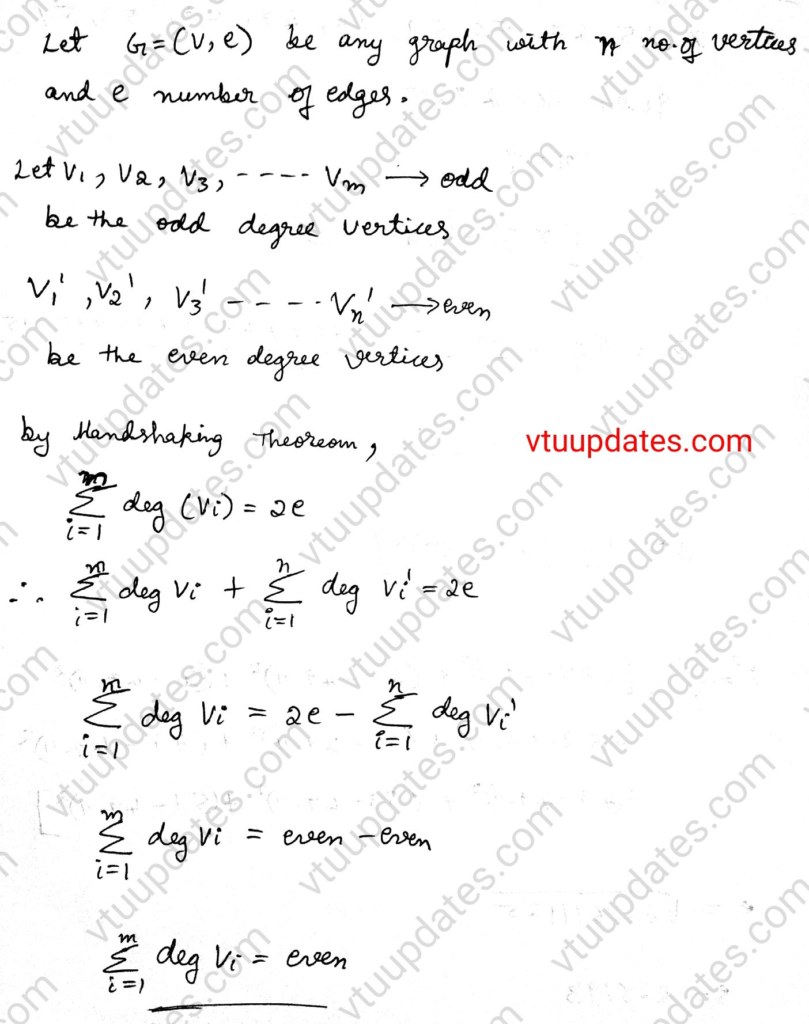 Let G=(V,e) be any graph with n no.of vertices
and e number of edges.
Let V₁, V₂, V₃, ---- Vₘ → odd
be the odd degree vertices
V₁', V₂', V₃' ----- Vₙ' → even
be the even degree vertices
by Handshaking Theoreom,
vtuupdates.com
∑_{i=1}^{m} deg (Vi) = 2e
∴ ∑_{i=1}^{m} deg Vi + ∑_{i=1}^{n} deg Vi' = 2e
∑_{i=1}^{m} deg Vi = 2e - ∑_{i=1}^{n} deg Vi'
∑_{i=1}^{m} deg Vi = even - even
∑_{i=1}^{m} deg Vi = even